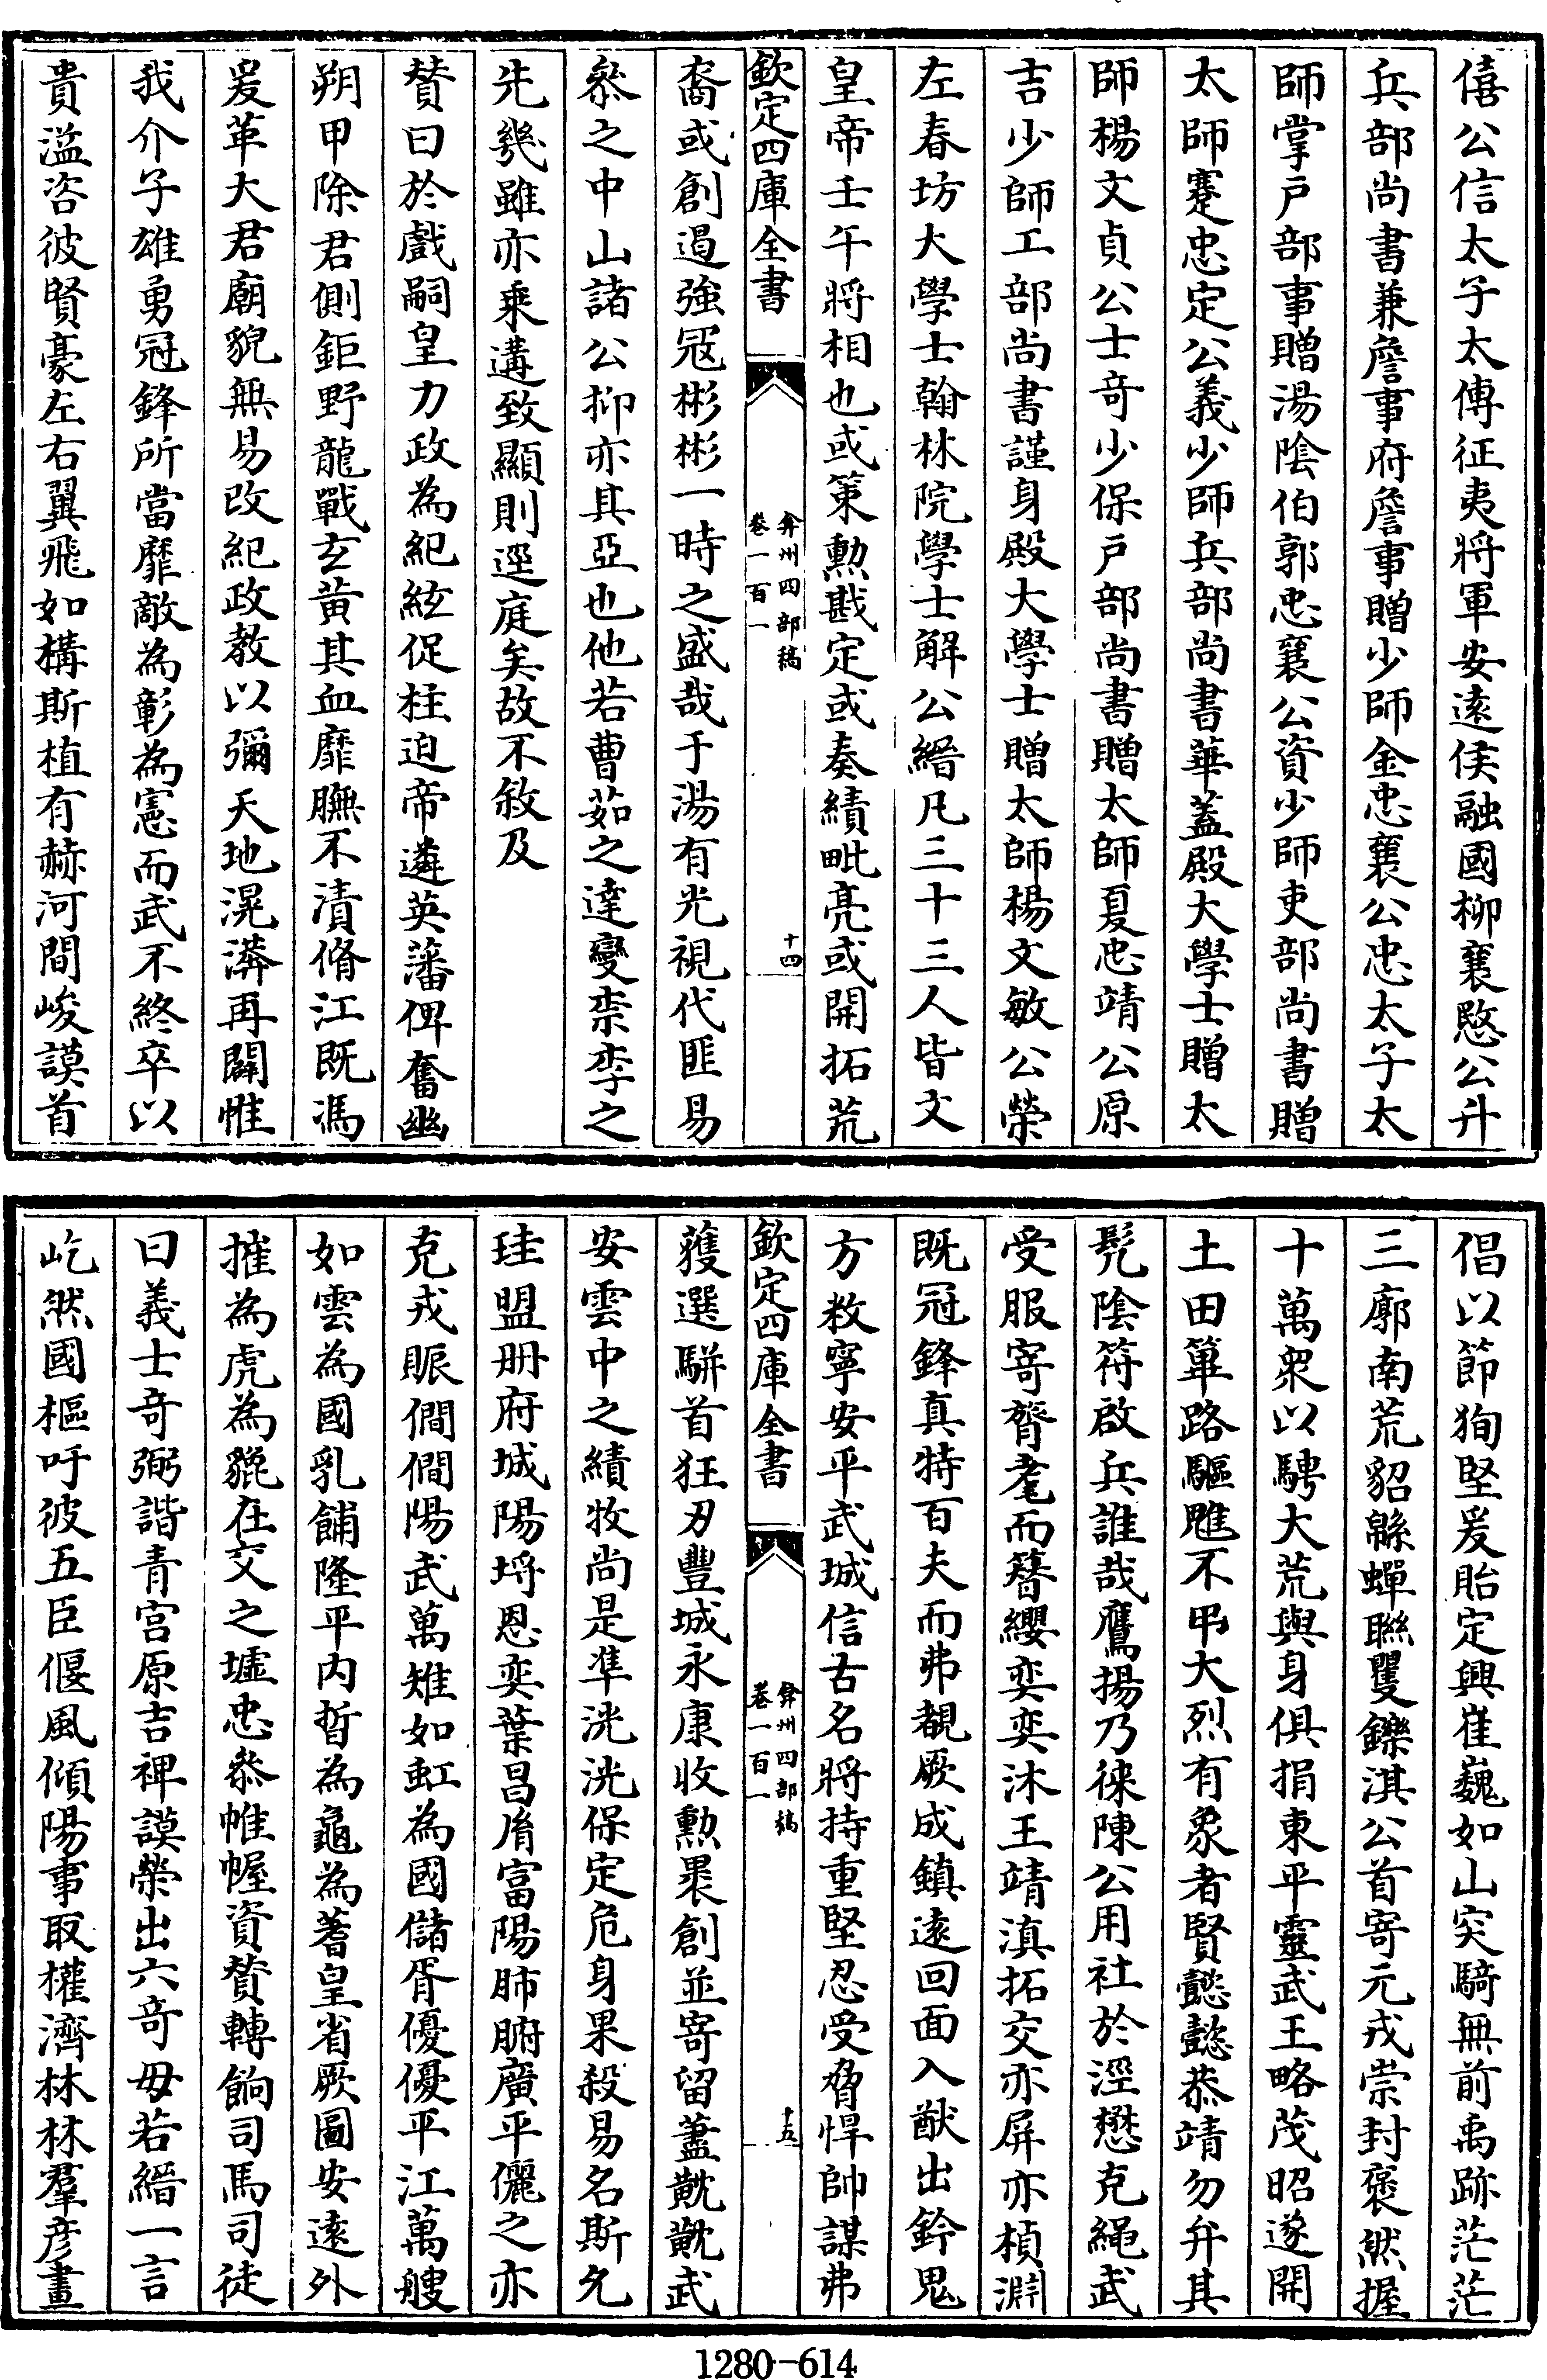 僖公信太子太傅征夷將軍安遠侯融國柳襄愍公升
兵部尚書兼詹事府詹事贈少師金忠襄公忠太子太
師掌戶部事贈湯陰伯郭忠襄公資少師吏部尚書贈
太師蹇忠定公義少師兵部尚書華蓋殿大學士贈太
師楊文貞公士奇少保戶部尚書贈太師夏忠靖公原
吉少師工部尚書謹身殿大學士贈太師楊文敏公榮
左春坊大學士翰林院學士解公縉凡三十三人皆文
皇帝壬午將相也或策勲戡定或奏績毗亮或開拓荒
欽定四庫全書
弇州四部稿
卷一百一
十四
裔或創遏強宼彬彬一時之盛哉于湯有光視代匪易
叅之中山諸公抑亦其亞也他若曹茹之達變柰李之
先幾雖亦乗遘致顯則逕庭矣故不敘及
賛曰於戲嗣皇力政為紀絃促柱迫帝遴英藩俾奮幽
朔甲除君側鉅野龍戰玄黄其血靡膴不漬脩江既馮
爰革大君廟貌無易改紀政教以彌天地滉瀁再闢惟
我介子雄勇冠鋒所當靡敵為彰為憲而武不終卒以
貴溢咨彼賢豪左右翼飛如構斯植有赫河間峻謨首
倡以節狥堅爰貽定興崔巍如山突騎無前禹跡茫茫
三廓南荒貂緜蟬聯矍鑠淇公首寄元戎崇封襃然握
十萬衆以騁大荒與身俱捐東平靈武王略茂昭遂開
土田篳路驅魋不弔大烈有象者賢懿懿恭靖勿弁其
髠陰符啟兵誰哉鷹揚乃徠陳公用社於涇懋克繩武
受服寄膂耄而簪纓奕奕沐王靖滇拓交亦屏亦楨淵
既冠鋒真特百夫而弗覩厥成鎮遠回面入猷出鈐思
方敉寧安平武城信古名將持重堅忍受脅悍帥謀弗
欽定四庫全書
弇州四部稿
卷一百一
十五
蒦選駢首狂刃豐城永康收勲褁創並寄留藎黈黈武
安雲中之績牧尚是凖洸洸保定危身果殺易名斯允
珪盟册府城陽埓恩奕葉昌胤富陽肺腑廣平儷之亦
克戎賑僩僩陽武萬雉如虹為國儲胥優優平江萬艘
如雲為國乳餔隆平内晢為龜為蓍皇省厥圖安遠外
摧為虎為貔在交之墟忠叅帷幄資賛轉餉司馬司徒
曰義士奇弼諧青宫原吉裨謨榮出六奇毋若縉一言
屹然國樞吁彼五臣偃風傾陽事取權濟林林羣彦畫
1280-614